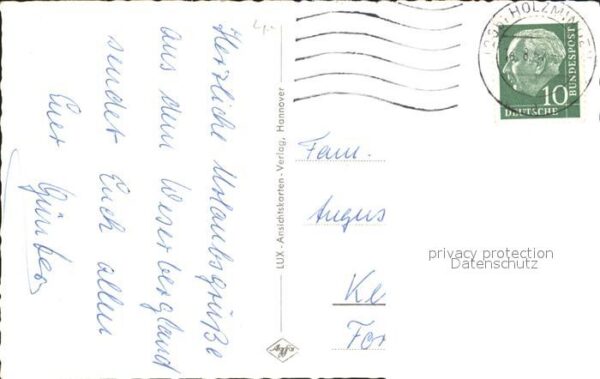 Herzliche Urlaubsgrüße
aus dem Weserbergland
sendet Euch allen
Euer Günther
LUX-Ansichtskarten-Verlag, Hannover
Agfa
HOLZMINDEN
10
DEUTSCHE
BUNDESPOST
Fam.
Augus
Ke
For
privacy protection
Datenschutz